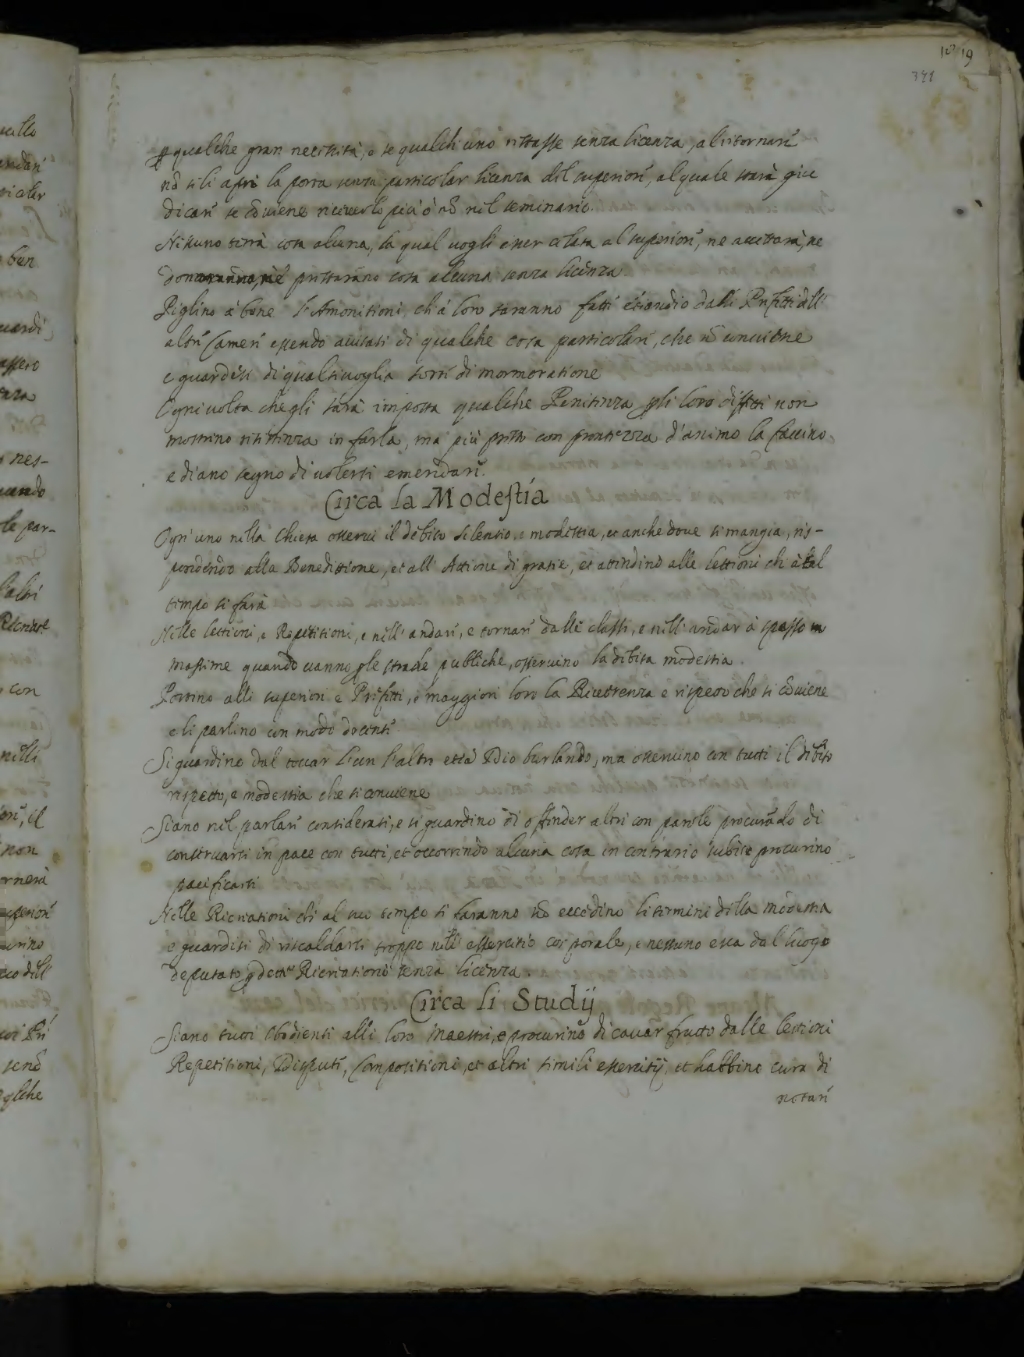 1819
391
qualche gran necessità, o se qualch'uno uscisse senza licenza, al ritornar
nõ se li apri la porta senza particolar licenza del superior, al quale starà giu
dicar se cõuiene riceuerlo più ò nõ nel seminario.
Nissuno terrà cosa alcuna, la qual uogli esser celata al superior, ne accettarà, ne
prestarãno cosa alcuna senza licenza.
Piglino à bene l'Amonitioni, ch'à loro saranno fatti etiandio dalli Prefetti dell'
altri Camer essendo auisati di qualche cosa particolari, che nõ conuiene
e guardisi di qualsiuoglia sorti di mormoratione
Ogni uolta che gli sarà imposta qualche Penitenza p gli loro difetti non
mostrino resistenza in farla, ma più presto con prontezza d'animo la faccino,
e diano segno di uolersi emendar.
Circa la Modestia
Ogn'uno nella Chiesa osserui il debito silentio e modestia, et anche doue si mangia, ris-
pondendo alla Beneditione, et all'Attione di gratie, et attendino alle lettioni ch'à tal
tempo si farà
Nelle lettioni, e Repetitioni, e nell'andar, e tornar dalle classi, e nell'andar à spasso
massime quando uanno p le strade publiche, osseruino la debita modestia.
Portino alli superiori e Prefetti, ò maggiori loro la Riuerenza e rispetto che si cõuiene
e li parlino con modo decenti
Si guardino dal toccar l'un l'altro etiã Dio burlando, ma osseruino con tutti il debito
rispetto, e modestia che si conuiene
Siano nel parlar considerati, e si guardino di offender altri con parole procurãdo di
conseruarsi in pace con tutti, et occorrendo alcuna cosa in contrario subito procurino
pacificarsi
Nelle Ricreationi ch'al suo tempo si faranno nõ eccedino li termini della modestia
e guardisi di riscaldarsi troppo nell'essercitio corporale, e nessuno esca dal luogo
deputato p detta Ricreatione senza licenza.
Circa li Studij
Siano tutti Obedienti alli loro Maestri, e procurino di cauar frutto dalle lettioni
Repetitioni, Disputi, Compositioni, et altri simili essercitij et habbino cura di
notari